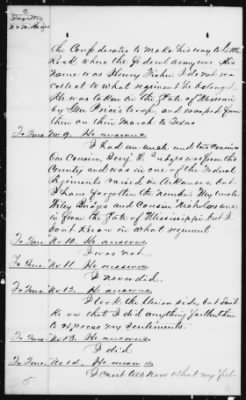 the Confederates to make his way to Little
Rock where the Federal army was His
name was Henry Fisher I do not re
collect to what regiment he belonged.
He was taken in the State of Missouri
by Gen Price's troop and escaped from
them on their March to Texas
To Ques No. 9. He answers
I had an uncle and two cousins
One Cousin, Benj. F. Bridges was from this
County and was in one of the Federal
Regiments raised in Arkansas but
I have forgotten the number. My Uncle
Wiley Bridges and Cousin Nicholas one
in from the State of Mississippi but I
dont Know in what regiment
To Ques No. 10. He answers
I was not.
To Ques No. 11. He answers
I never did.
To Ques No. 12. He answers
I took the Union side, but dont
Know that I did anything farther than
to express my sentiments.
To Ques No. 13. He answers
I did
To Ques No. 14. He answers
I cant tell now what my feel